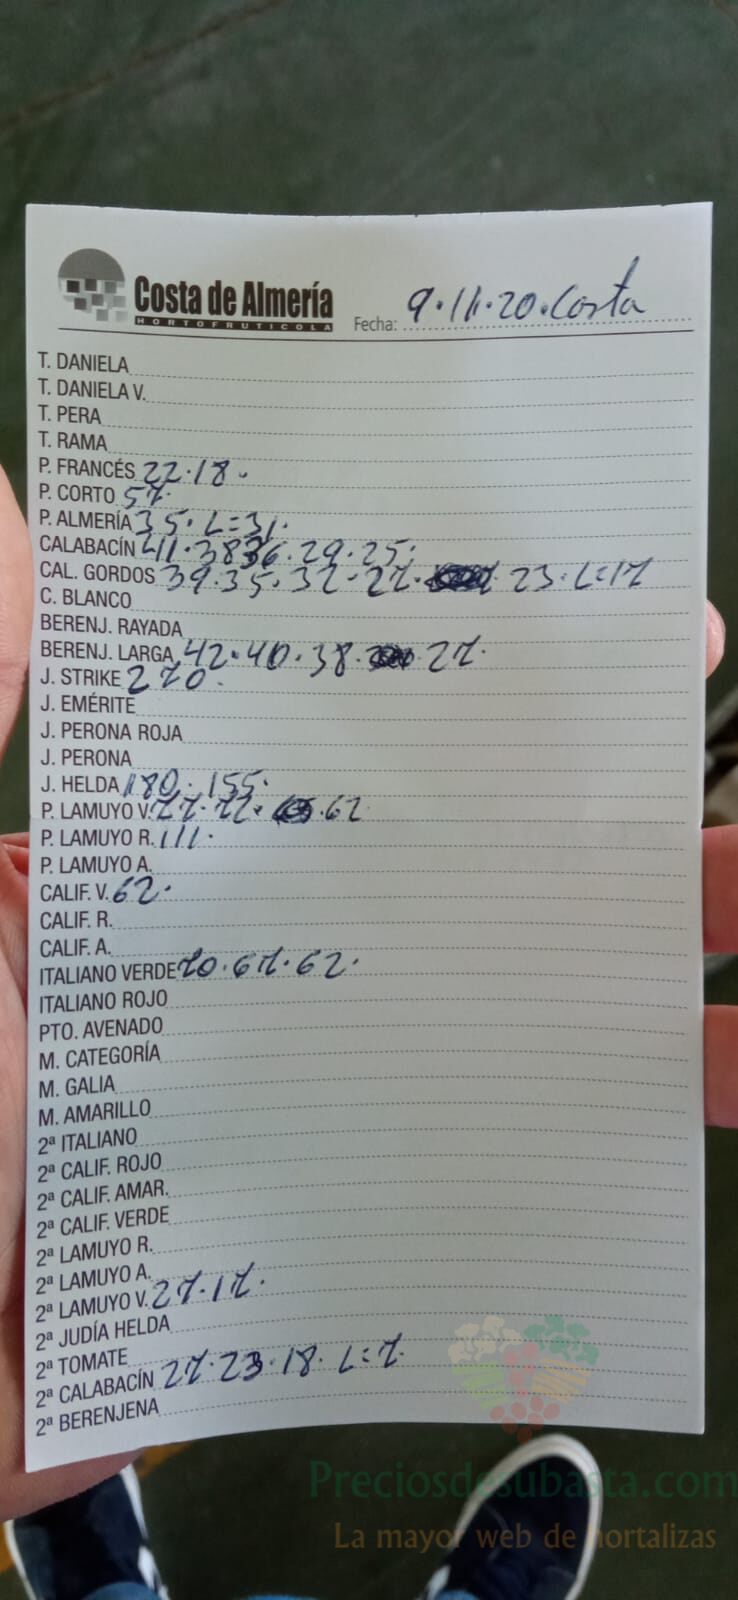 Costa de Almería
HORTOFRUTICOLA
Fecha: 9.11.20. Costa
T. DANIELA
T. DANIELA V.
T. PERA
T. RAMA
P. FRANCÉS 22.18.
P. CORTO 57.
P. ALMERÍA 35. L=31.
CALABACÍN 411.38 36.29.25.
CAL. GORDOS 39.35.32.27. 23. L=17
C. BLANCO
BERENJ. RAYADA
BERENJ. LARGA 42.40.38. 27.
J. STRIKE 270.
J. EMÉRITE
J. PERONA ROJA
J. PERONA
J. HELDA 180. 155.
P. LAMUYO V. 77.72. 62
P. LAMUYO R. 111.
P. LAMUYO A.
CALIF. V. 62.
CALIF. R.
CALIF. A.
ITALIANO VERDE 70.67.62.
ITALIANO ROJO
PTO. AVENADO
M. CATEGORÍA
M. GALIA
M. AMARILLO
2ª ITALIANO
2ª CALIF. ROJO
2ª CALIF. AMAR.
2ª CALIF. VERDE
2ª LAMUYO R.
2ª LAMUYO A.
2ª LAMUYO V. 27.17.
2ª JUDÍA HELDA
2ª TOMATE
2ª CALABACÍN 27.23.18. L=7.
2ª BERENJENA
Preciosdesubasta.com
La mayor web de hortalizas